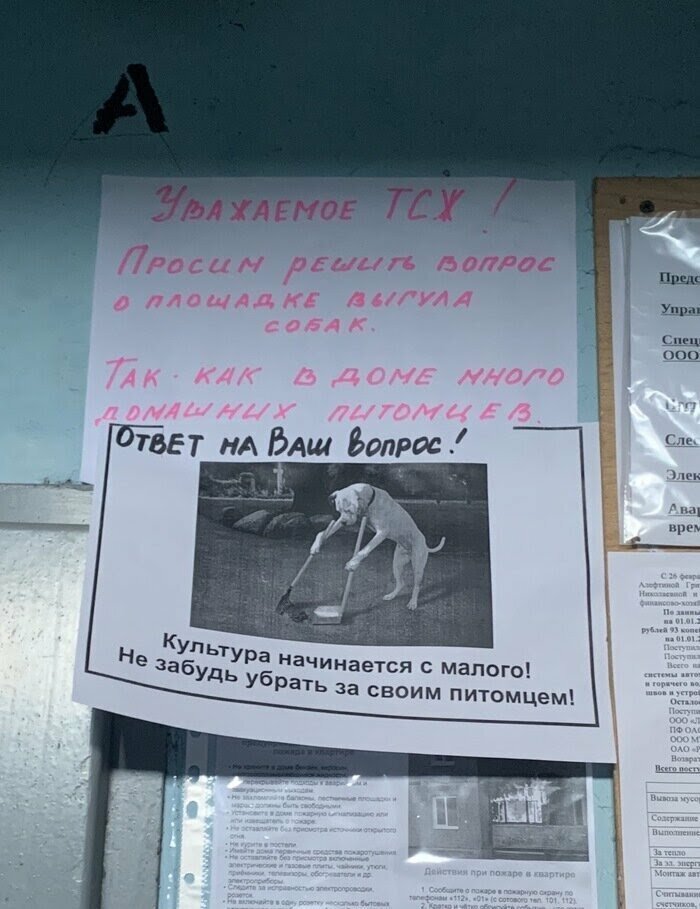 А
Уважаемое ТСЖ !
Просим решить вопрос
о площадке выгула
собак.
Так как в доме много
домашних питомцев.
Ответ на Ваш вопрос!
Культура начинается с малого!
Не забудь убрать за своим питомцем!
Управ
ООО
Элек
С 26 февра
Николаевной и
финансово-хозяй
По данны
на 01.01.2
рублей 93 копе
на 01.01.2
Поступил
Поступил
Всего на
системы авто
и горячего во
швов и устрой
Поступи
ООО «Л
ПФ ОАО
ООО М
ОАО «Р
Возврат
Всего посту
Вывоза мусо
Содержание
Выполнение
За тепло
За эл. энерг
Монтаж авт
Считывани
счетчиков
пожара в квартире
• Не храните в доме бензин, керосин,
• Не загромождайте балконы, лестничные площадки и
марш: должны быть свободными.
• Установите в доме пожарную сигнализацию или
или извещатель о пожаре.
• Не оставляйте без присмотра источники открытого
огня.
• Не курите в постели.
• Имейте дома первичные средства пожаротушения
• Не оставляйте без присмотра включенные
электрические и газовые плиты, чайники, утюги,
приёмники, телевизоры, обогреватели и др.
электроприборы.
• Следите за исправностью электропроводки,
розеток.
• Не включайте в одну розетку несколько бытовых
Действия при пожаре в квартире
1. Сообщите о пожаре в пожарную охрану по
телефонам «112», «01» (с сотового тел. 101, 112).